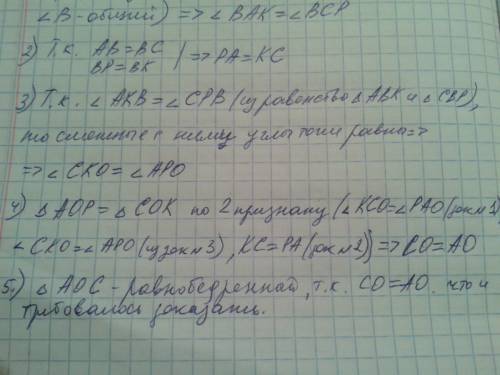 ∠B-общий) => ∠BAK=∠BCP
2) Т.к. AB=BC
BP=BK | => PA=KC
3) Т.к. ∠AKB=∠CPB (из равенства △ABK и △CBP),
то смежные с ними углы тоже равны=>
=> ∠CKO=∠APO
4) △AOP=△COK по 2 признаку (∠KCO=∠PAO (док №1)
∠CKO=∠APO (из док №3), KC=PA (док №2)) => CO=AO
5.) △AOC - равнобедренный, т.к. CO=AO. что и
требовалось доказать.